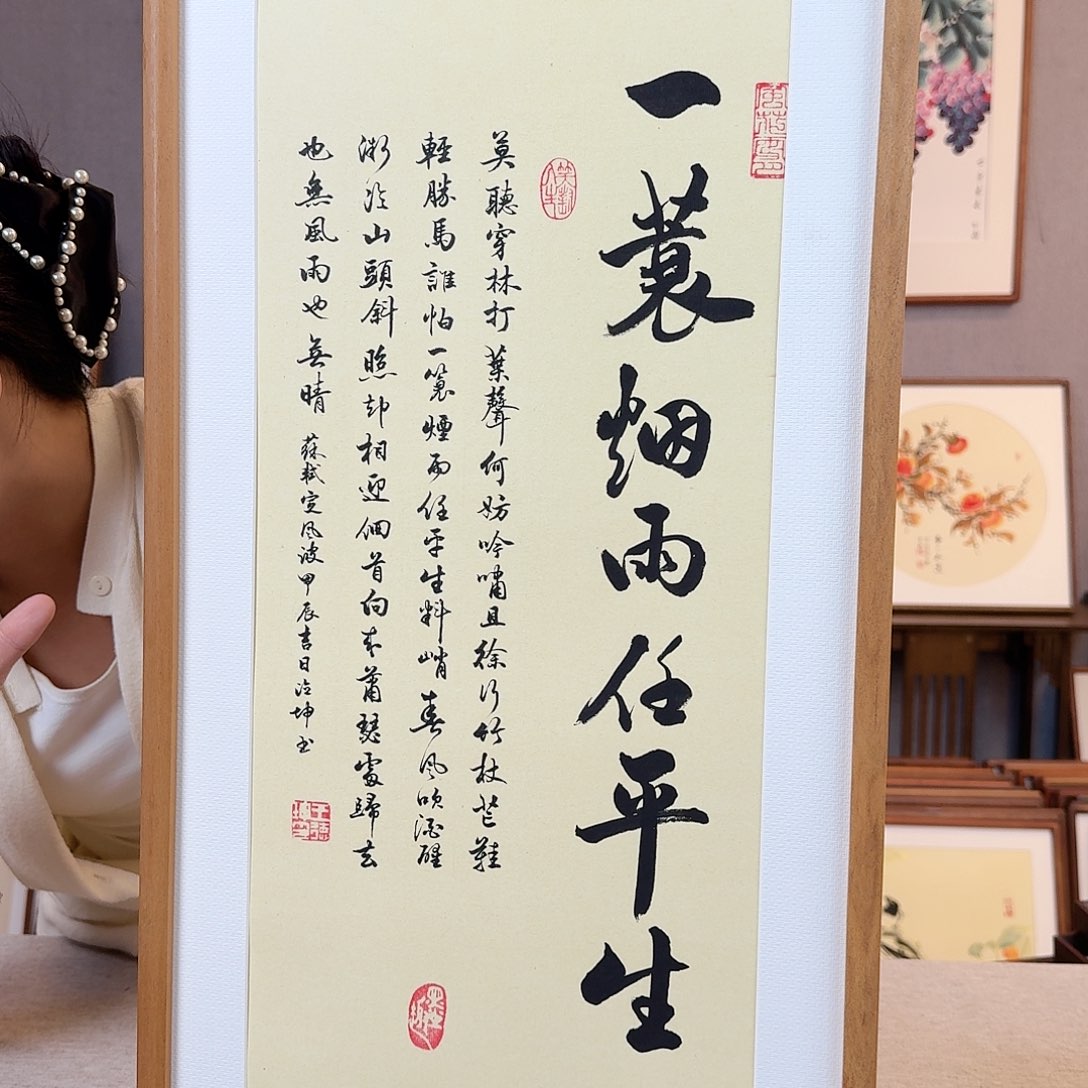 一蓑烟雨任平生
莫聽穿林打葉聲何妨吟嘯且徐行竹杖芒鞋
輕勝馬誰怕一蓑煙雨任平生料峭春風吹酒醒
微冷山頭斜照却相迎回首向來蕭瑟處歸去
也無風雨也無晴 蘇軾定風波甲辰吉日冶坤书